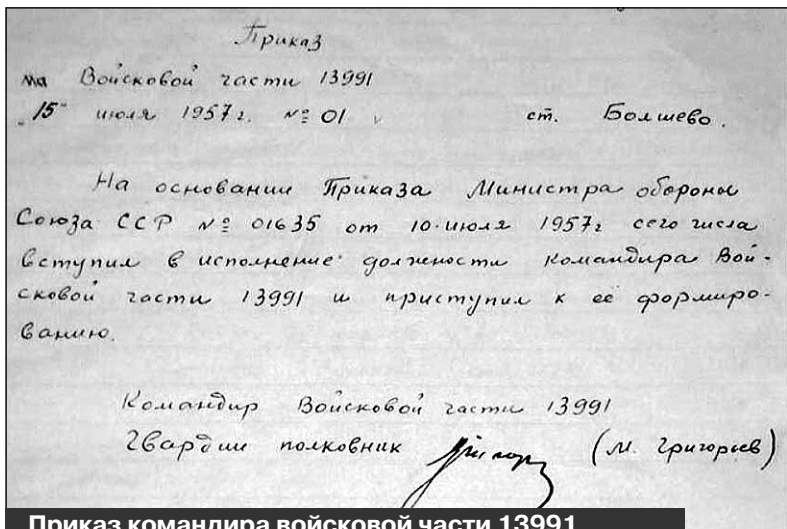 Приказ
на Войсковой части 13991
"15" июля 1957г. № 01 ст. Болшево.
На основании Приказа Министра обороны
Союза ССР № 01635 от 10 июля 1957г сего числа
вступил в исполнение должности командира Вой-
сковой части 13991 и приступил к её формиро-
ванию.
Командир Войсковой части 13991
Гвардии полковник (М. Григорьев)
Приказ командира войсковой части 13991